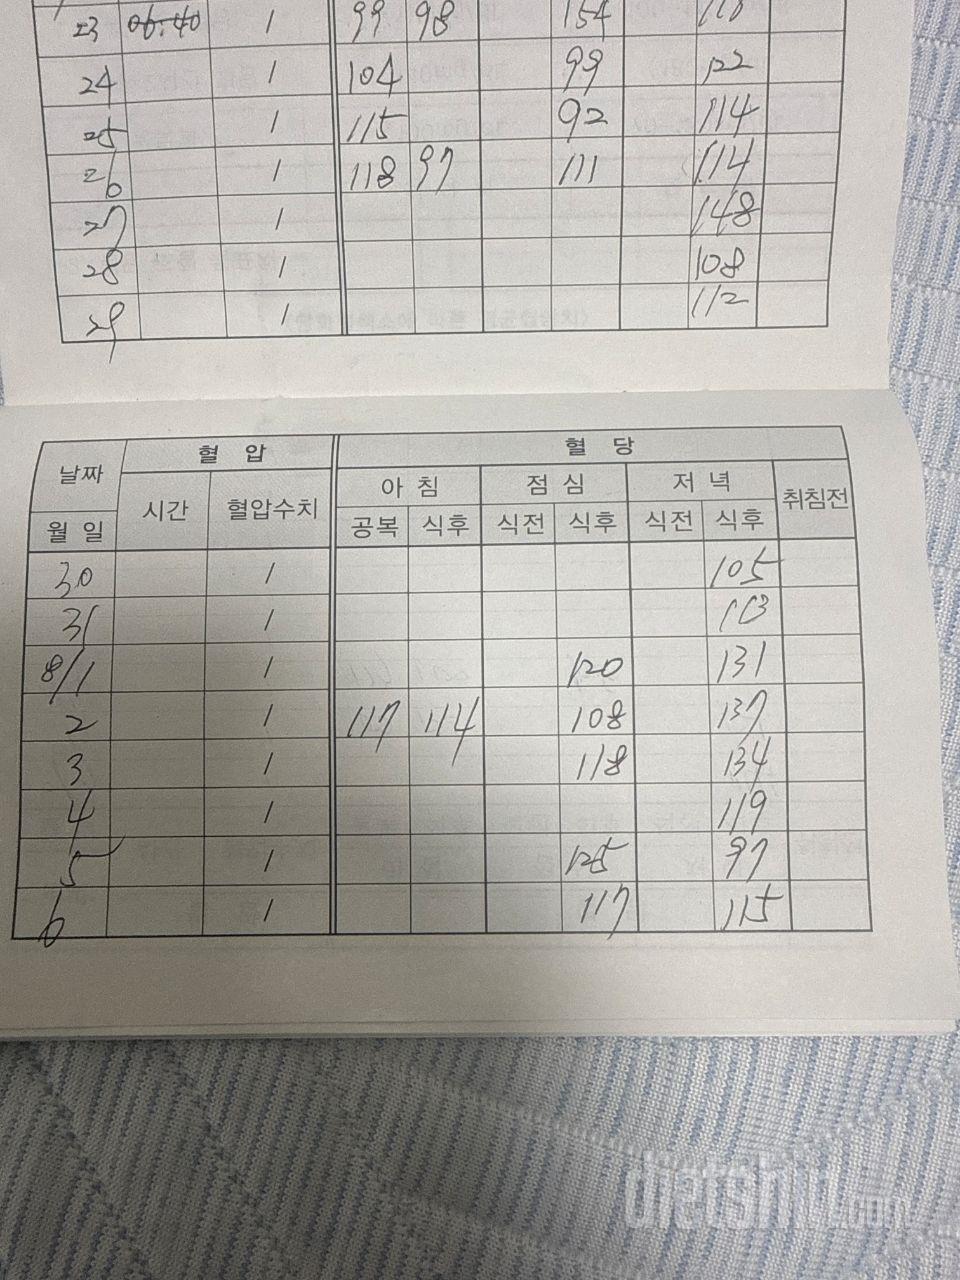 23 06:40 / 99 98 154 118
24 / 104 99 122
25 / 115 92 114
26 / 118 97 111 114
27 / 148
28 / 108
29 / 112
날짜 혈 압 혈 당
아 침 점 심 저 녁 취침전
월 일 시간 혈압수치 공복 식후 식전 식후 식전 식후
30 / 105
31 / 113
8/1 / 120 131
2 / 117 114 108 137
3 / 118 134
4 / 119
5 / 125 97
6 / 117 115
dietshin.com